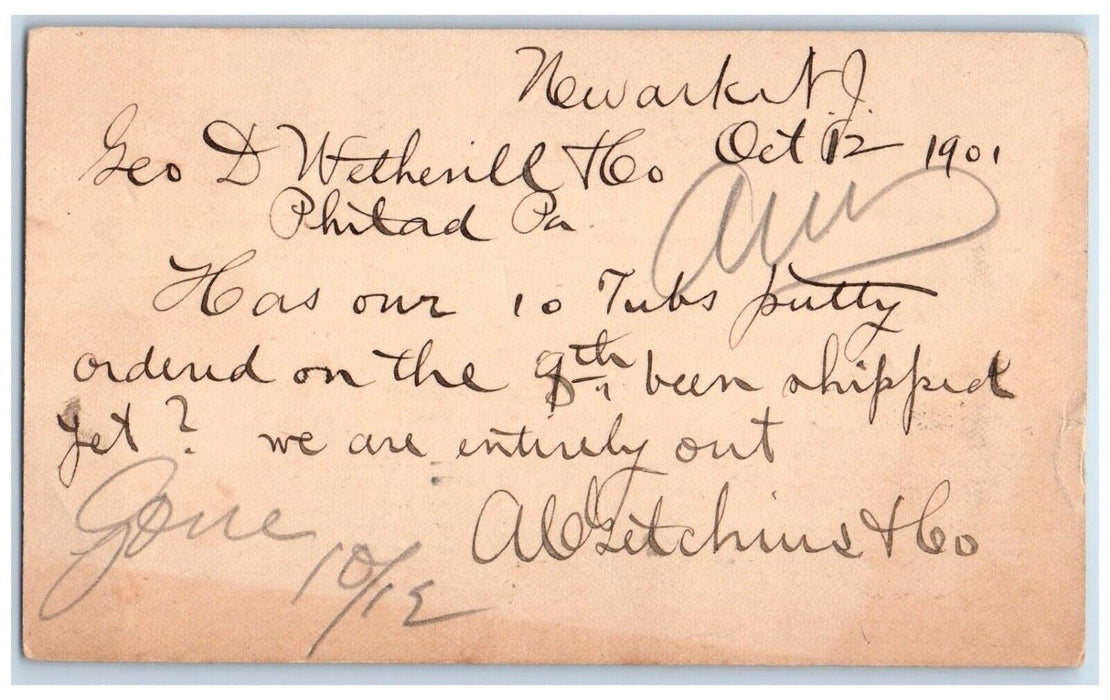 Newark N.J.
Oct 12 1901
Geo D Wetherill & Co
Philad Pa.
Has our 10 Tubs putty
ordered on the 8th been shipped
yet? we are entirely out
A C Getchius & Co
Gone
10/12